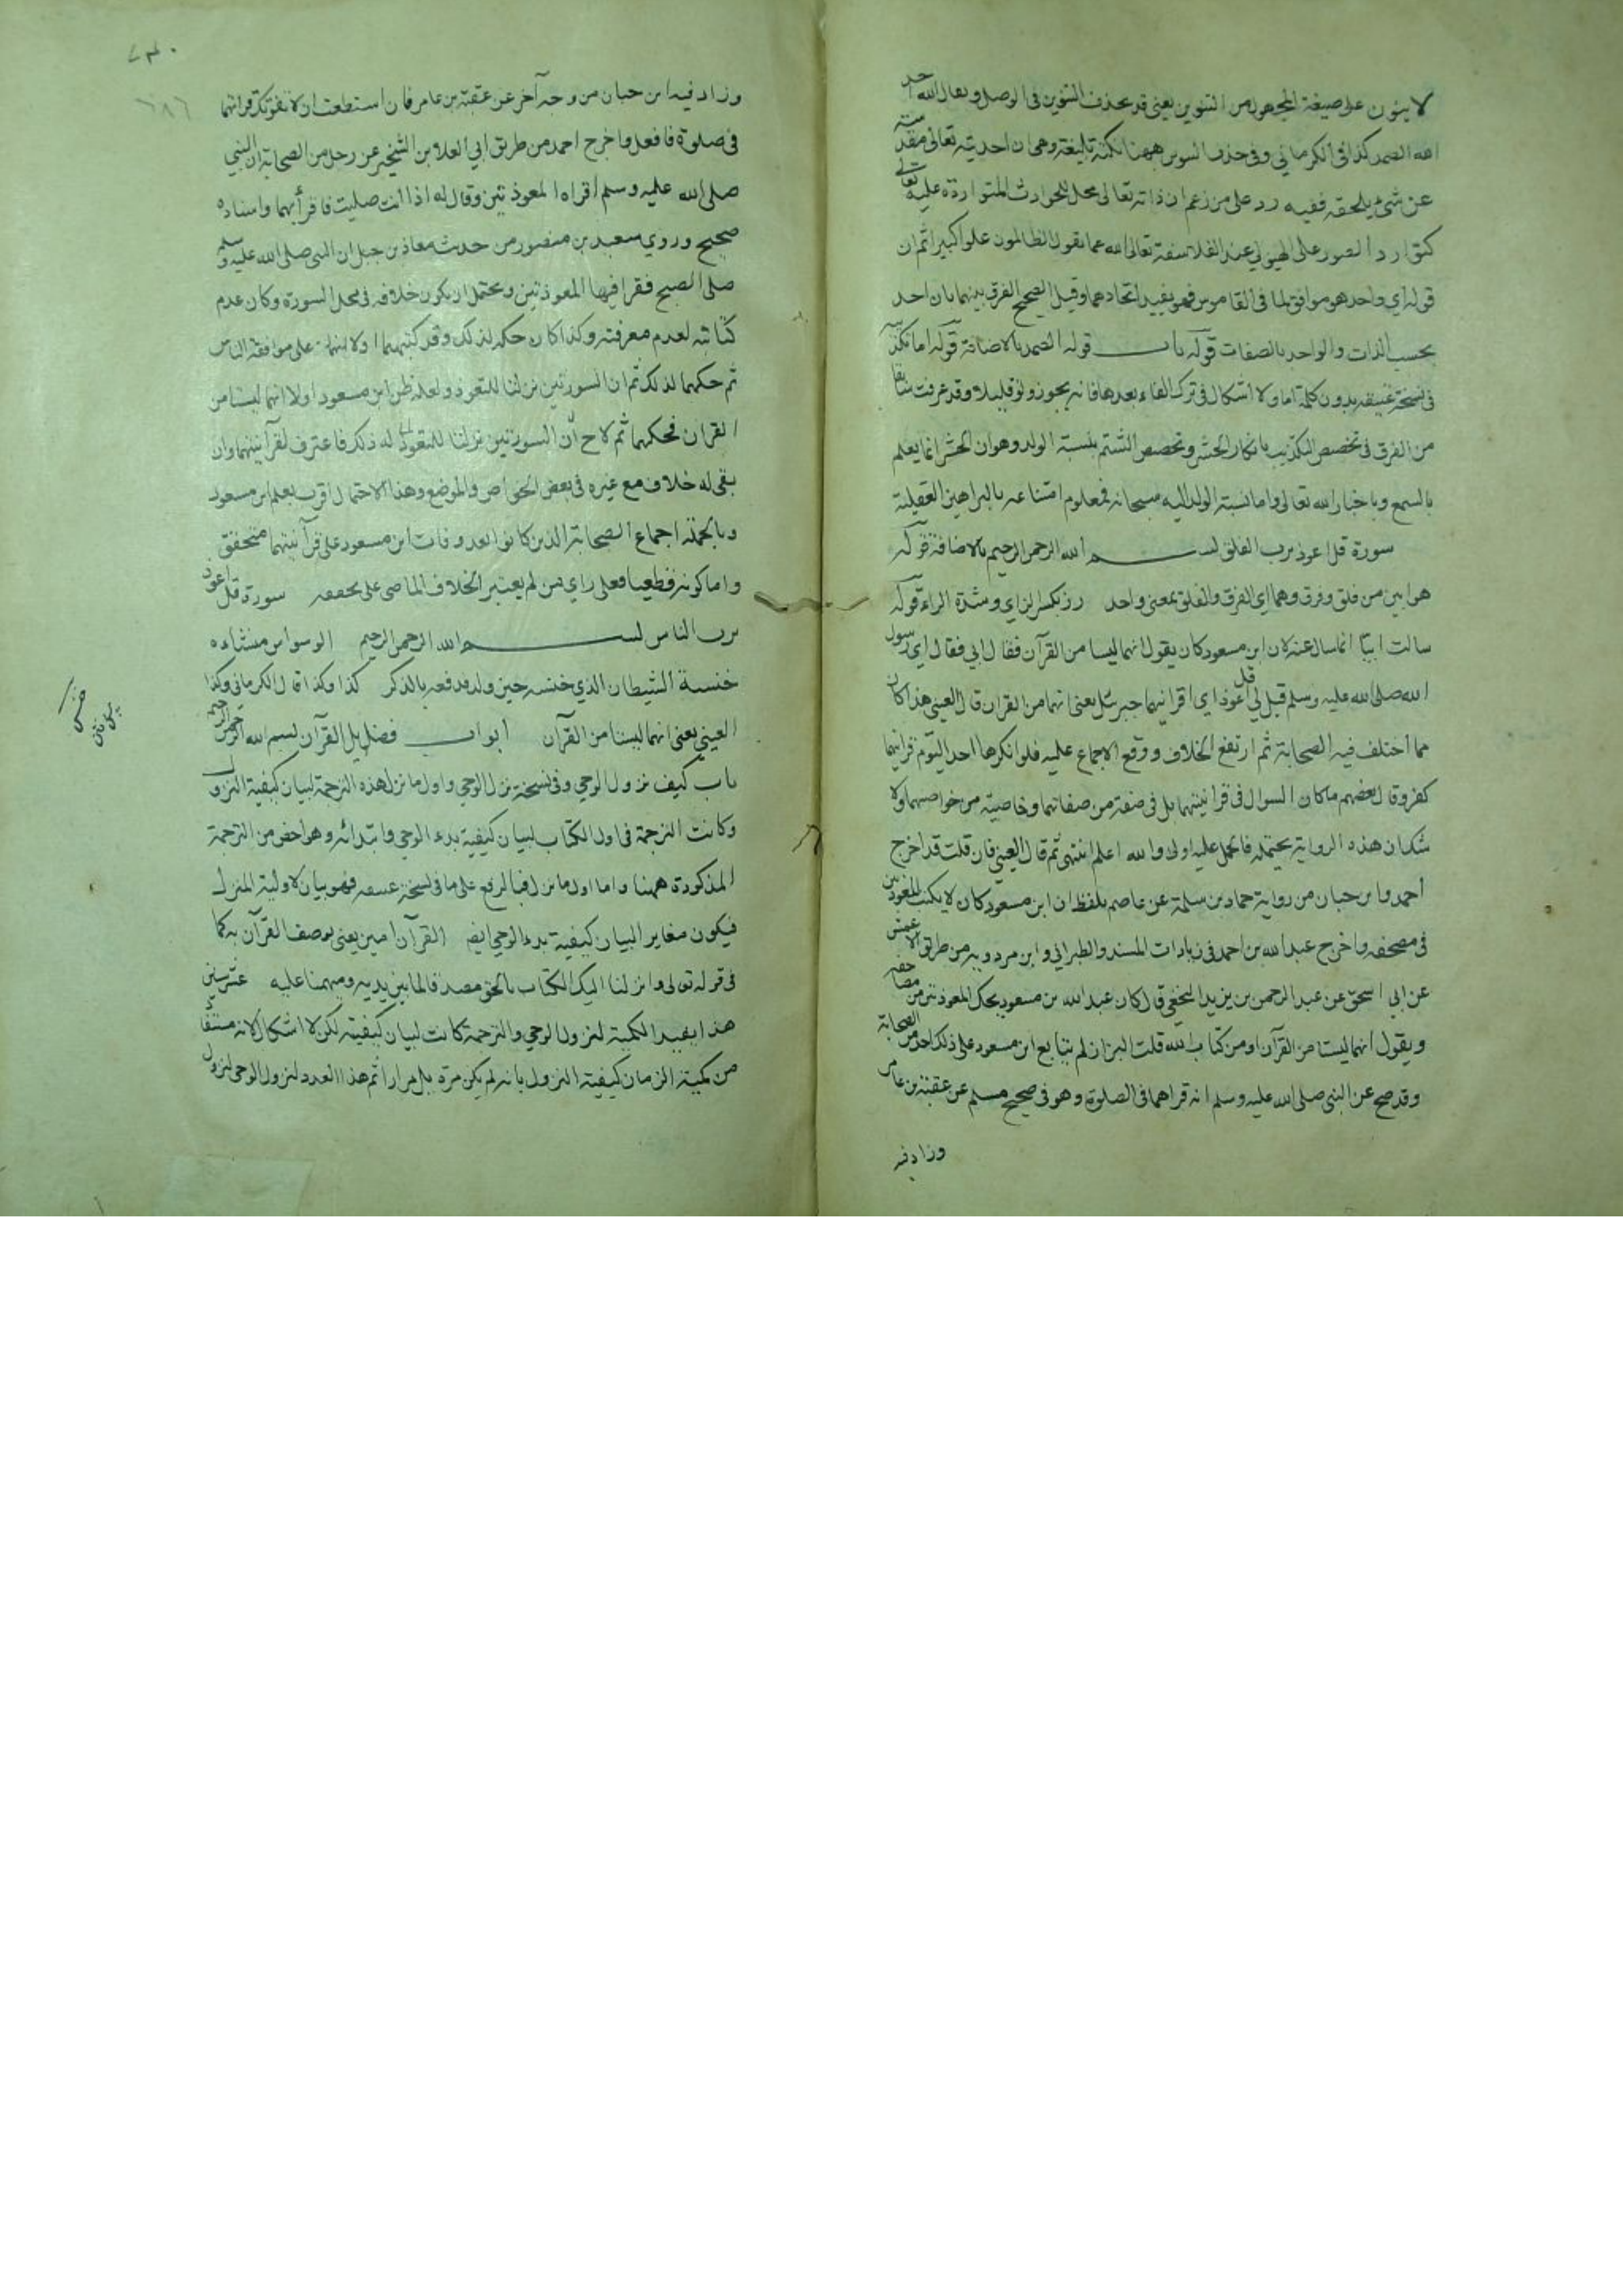 لا ينون على صيغة المجهول من التنوين يعني قد يحذف التنوين في الوصل ويقال الله احد
الله الصمد كذا في الكرماني وفي حذف التنوين ههنا نكتة بليغة وهي ان احديته تعالى مقدسة
عن شئ يلحقه ففيه رد على من زعم ان ذاته تعالى محل للحوادث المتواردة عليه تعالى
كتوارد الصور على الهيولي عند الفلاسفة تعالى الله عما يقول الظالمون علوا كبيرا ثم ان
قوله اي واحد هو موافق لما في القاموس فهو يفيد اتحادهما وقيل الصحيح الفرق بينهما بان احد
بحسب الذات والواحد بالصفات قوله باب قوله الصمد بالاضافة قوله اما تكذيبه
في نسخة عتيقة بدون كلمة اما ولا اشكال في ترك الفاء بعدها فانه يجوز ولو قليلا وقد عرفت سابقا
من الفرق في تخصيص التكذيب بانكار الحشر وتخصيص الشتم بنسبة الولد وهو ان الحشر انما يعلم
بالسمع وباخبار الله تعالى واما نسبة الولد اليه سبحانه فمعلوم امتناعه بالبراهين العقلية
سورة قل اعوذ برب الفلق بسم الله الرحمن الرحيم بالاضافة قوله
هو ابين من فلق وفرق وهما اي الفرق والفلق بمعنى واحد رز بكسر الزاي وشدة الراء قوله
سالت ابيا انما سال عنه لان ابن مسعود كان يقول انهما ليسا من القرآن فقال ابي فقال اي رسول
الله صلى الله عليه وسلم قيل لي قل اعوذ اي اقرانيهما جبرئيل يعني انهما من القران قال العيني هذا كان
مما اختلف فيه الصحابة ثم ارتفع الخلاف ووقع الاجماع عليه فلو انكرها احد اليوم قرانيتهما
كفر وقال بعضهم ما كان السوال في قرانيتهما بل في صفة من صفاتهما وخاصية من خواصهما ولا
شك ان هذه الرواية يحتمله فالحمل عليه اولى والله اعلم انتهى ثم قال العيني فان قلت قد اخرج
أحمد وابن حبان من رواية حماد بن سلمة عن عاصم بلفظ ان ابن مسعود كان لا يكتب المعوذتين
في مصحفه واخرج عبد الله بن احمد في زيادات المسند والطبراني وابن مردويه من طريق الاعمش
عن ابي اسحق عن عبد الرحمن بن يزيد النخعي قال كان عبد الله بن مسعود يحك المعوذتين من مصاحفه
ويقول انهما ليستا من القرآن او من كتاب الله قلت البزار لم يتابع ابن مسعود على ذلك احد من الصحابة
وقد صح عن النبي صلى الله عليه وسلم انه قراهما في الصلوة وهو في صحيح مسلم عن عقبة بن عامر
وزاد فيه
وزاد فيه ابن حبان من وجه آخر عن عقبة بن عامر فان استطعت ان لا تفوتك قرائتهما
في صلوة فافعل واخرج احمد من طريق ابي العلا بن الشخير عن رجل من الصحابة ان النبي
صلى الله عليه وسلم اقراه المعوذتين وقال له اذا انت صليت فاقرأ بهما واسناده
صحيح وروي سعيد بن منصور من حديث معاذ بن جبل ان النبي صلى الله عليه وسلم
صلى الصبح فقرا فيها المعوذتين ويحتمل ان يكون خلافه في محل السورة وكان عدم
كتابته لعدم معرفته وكذا كان حكه لذلك وقد كتبهما اولا على موافقة الناس
ثم حكهما لذلك ثم ان السورتين نزلتا للتعوذ ولعله ظن ابن مسعود اولا انهما ليستا من
القران فحكهما ثم لاح أن السورتين نزلتا للتعوذ له ذلك فاعترف لقرآنيتهما وان
بقي له خلاف مع غيره في بعض الخواص والموضع وهذا الاحتمال اقرب بعلم ابن مسعود
وبالجملة اجماع الصحابة الذين كانوا بعد وفات ابن مسعود على قرآنيتهما متحقق
واما كونه قطعيا فعلى راي من لم يعتبر الخلاف الماضي على تحققه سورة قل اعوذ
برب الناس بسم الله الرحمن الرحيم الوسواس منشاءه
خنسة الشيطان الذي خنسه حين ولد فدفعه بالذكر كذا وكذا قال الكرماني وكذا
العيني يعني انهما ليستا من القرآن ابواب فضايل القرآن بسم الله الرحمن الرحيم
باب كيف نزول الوحي وفي نسخة نزل الوحي واول ما نزل هذه الترجمة لبيان كيفية النزول
وكانت الترجمة في اول الكتاب لبيان كيفية بدء الوحي وابتدائه وهو اخص من الترجمة
المذكورة ههنا واما اول ما نزل فبالرفع على ما في نسخة عتيقة فهو بيان لاولية المنزل
فيكون مغاير البيان كيفية بدء الوحي ايضا القرآن امين يعني يوصف القرآن به كما
في قوله تعالى وانزلنا اليك الكتاب بالحق مصدقا لما بين يديه ومهيمنا عليه عشر سنين
هذا يفيد الكمية لنزول الوحي والترجمة كانت لبيان كيفيته لكن لا اشكال لانه
من كمية الزمان كيفية النزول بانه لم يكن مرة بل مرارا ثم هذا العدد لنزول الوحي لنزول